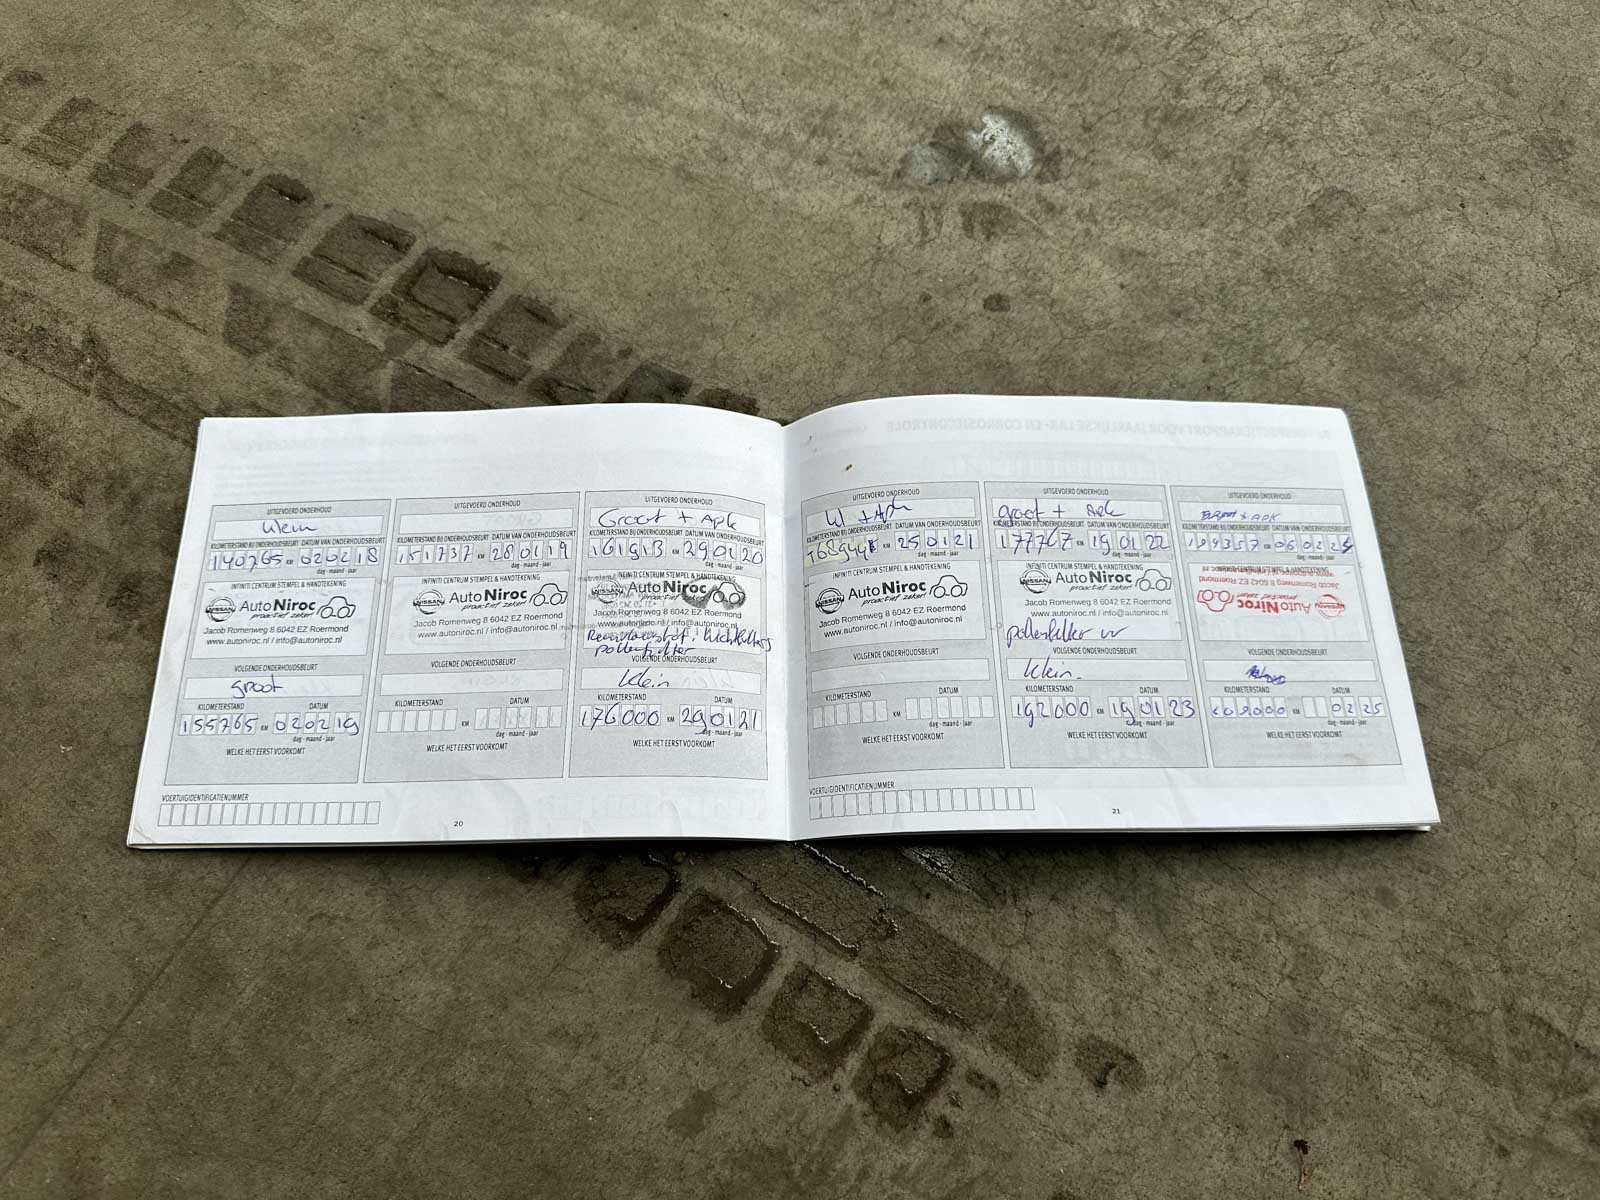 UITGEVOERD ONDERHOUD
klein
KILOMETERSTAND BIJ ONDERHOUDSBEURT DATUM VAN ONDERHOUDSBEURT
140765 KM 020218
dag - maand - jaar
INFINITI CENTRUM STEMPEL & HANDTEKENING
NISSAN
Auto Niroc
proactief zeker!
Jacob Romenweg 8 6042 EZ Roermond
www.autoniroc.nl / info@autoniroc.nl
VOLGENDE ONDERHOUDSBEURT
groot
KILOMETERSTAND DATUM
155765 KM 020219
dag - maand - jaar
WELKE HET EERST VOORKOMT
UITGEVOERD ONDERHOUD
KILOMETERSTAND BIJ ONDERHOUDSBEURT DATUM VAN ONDERHOUDSBEURT
151737 KM 280119
dag - maand - jaar
INFINITI CENTRUM STEMPEL & HANDTEKENING
NISSAN
Auto Niroc
proactief zeker!
Jacob Romenweg 8 6042 EZ Roermond
www.autoniroc.nl / info@autoniroc.nl
VOLGENDE ONDERHOUDSBEURT
KILOMETERSTAND DATUM
KM
dag - maand - jaar
WELKE HET EERST VOORKOMT
UITGEVOERD ONDERHOUD
Groot + Apk
KILOMETERSTAND BIJ ONDERHOUDSBEURT DATUM VAN ONDERHOUDSBEURT
KM 290120
dag - maand - jaar
INFINITI CENTRUM STEMPEL & HANDTEKENING
NISSAN
Auto Niroc
Jacob Romenweg 8 6042 EZ Roermond
www.autoniroc.nl / info@autoniroc.nl
Remvloeistof, luchtfilters
pollenfilter
VOLGENDE ONDERHOUDSBEURT
klein
KILOMETERSTAND DATUM
176000 KM 290121
dag - maand - jaar
WELKE HET EERST VOORKOMT
VOERTUIGIDENTIFICATIENUMMER
20
UITGEVOERD ONDERHOUD
+ Apk
KILOMETERSTAND BIJ ONDERHOUDSBEURT DATUM VAN ONDERHOUDSBEURT
KM 250121
dag - maand - jaar
INFINITI CENTRUM STEMPEL & HANDTEKENING
NISSAN
Auto Niroc
proactief zeker!
Jacob Romenweg 8 6042 EZ Roermond
www.autoniroc.nl / info@autoniroc.nl
VOLGENDE ONDERHOUDSBEURT
KILOMETERSTAND DATUM
KM
dag - maand - jaar
WELKE HET EERST VOORKOMT
UITGEVOERD ONDERHOUD
groot + Apk
KILOMETERSTAND BIJ ONDERHOUDSBEURT DATUM VAN ONDERHOUDSBEURT
177767 KM 190122
dag - maand - jaar
INFINITI CENTRUM STEMPEL & HANDTEKENING
NISSAN
Auto Niroc
proactief zeker!
Jacob Romenweg 8 6042 EZ Roermond
www.autoniroc.nl / info@autoniroc.nl
pollenfilter vv
VOLGENDE ONDERHOUDSBEURT
klein
KILOMETERSTAND DATUM
192000 KM 190123
dag - maand - jaar
WELKE HET EERST VOORKOMT
UITGEVOERD ONDERHOUD
+ APK
KILOMETERSTAND BIJ ONDERHOUDSBEURT DATUM VAN ONDERHOUDSBEURT
KM
dag - maand - jaar
INFINITI CENTRUM STEMPEL & HANDTEKENING
NISSAN
Auto Niroc
proactief zeker!
Jacob Romenweg 8 6042 EZ Roermond
VOLGENDE ONDERHOUDSBEURT
KILOMETERSTAND DATUM
KM 0225
dag - maand - jaar
WELKE HET EERST VOORKOMT
VOERTUIGIDENTIFICATIENUMMER
21